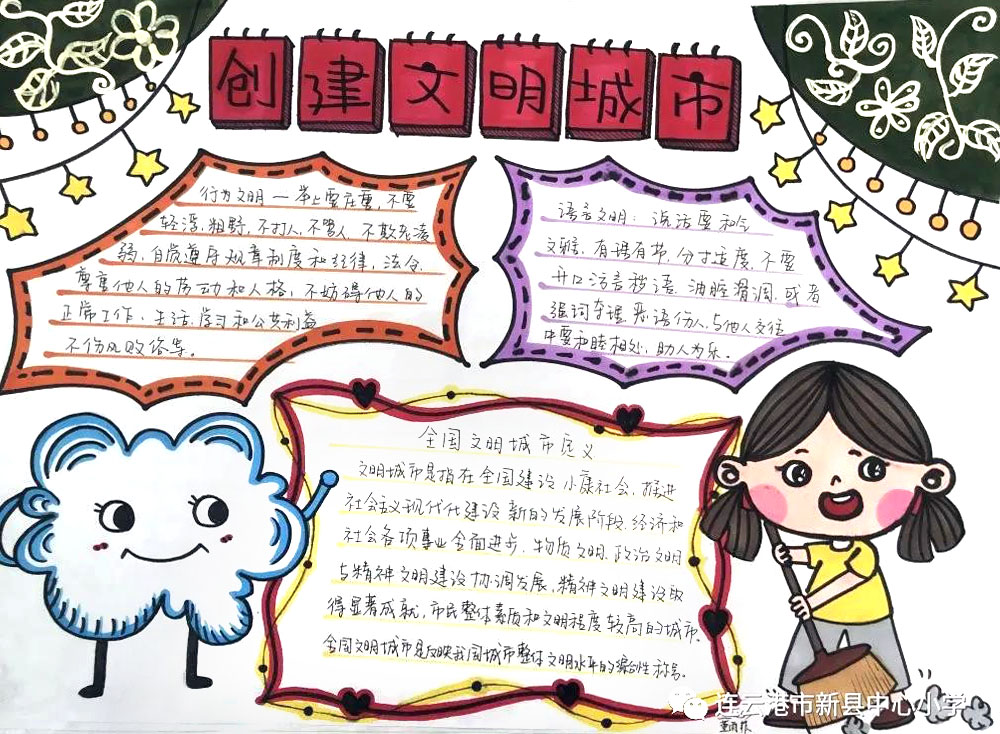 创建文明城市
行为文明——举止要庄重,不要
轻浮,粗野,不打人,不骂人,不欺老凌
弱,自觉遵守规章制度和纪律,法令,
尊重他人的劳动和人格,不妨碍他人的
正常工作、生活、学习和公共利益
不伤风败俗等。
语言文明:说话要和气
文雅,有理有节,分寸适度,不要
开口污言秽语,油腔滑调,或者
强词夺理,恶语伤人,与他人交往
中要和睦相处,助人为乐。
全国文明城市定义
文明城市是指在全国建设小康社会,推进
社会主义现代化建设新的发展阶段,经济和
社会各项事业全面进步,物质文明,政治文明
与精神文明建设协调发展,精神文明建设取
得显著成就,市民整体素质和文明程度较高的城市.
全国文明城市是反映我国城市整体文明水平的综合性称号.
连云港市新县中心小学